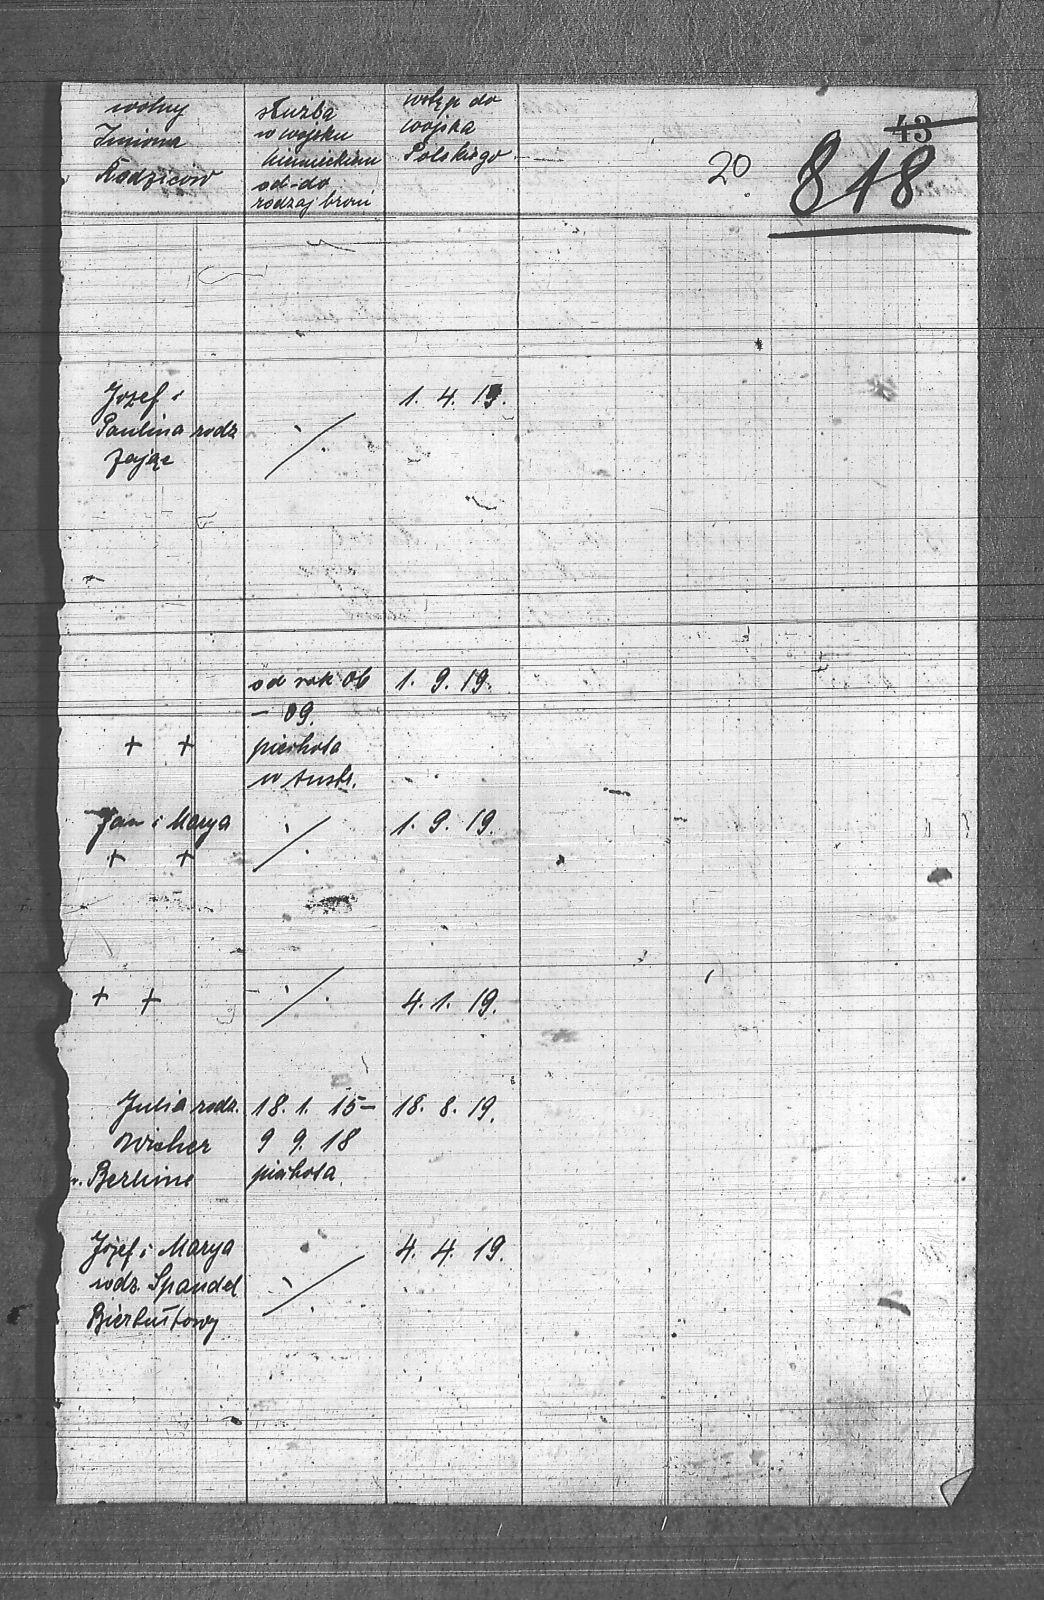 wolny
Imiona
Rodziców
służba
w wojsku
niemieckiem
od-do
rodzaj broni
wstęp do
wojska
Polskiego
20
43
848
Jozef i
Paulina rodz
Zając
1. 4. 19.
od rok 06
- 09.
piechota
w Austr.
1. 9. 19.
+ +
Jan i Marya
+ +
./.
1. 9. 19.
+ +
./.
4. 1. 19.
Julia rodz.
Wicher
Berlinie
18. 1. 15 -
9 9. 18
piechota
18. 8. 19.
Józef i Marya
rodz. Spandel
./.
4. 4. 19.